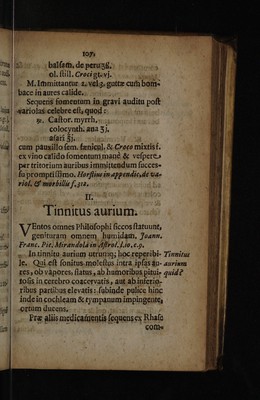 107.
balsam. de peru ʒß.
ol. still. Croci gt. vj.
M. Immittantur 2. velʒ. guttæ cum bom-
bace in aures calidè.
Sequens fomentum in gravi auditu post
variolas celebre est, quod:
℞. Castor. myrrh.
colocynth. ana ʒj.
asari ℥j.
cum pauxillo sem. fœnicul. & Croco mixtis f.
ex vino calido fomentum manè & vesperè,
per tritorium auribus immittendum succes-
su promptissimo. Horstius in appendic. de va-
riol. & morbillis f. 312.
II.
Tinnitus aurium.
VEntos omnes Philosophi siccos statuunt,
genituram omnem humidam. Joann.
Franc. Pic. Mirandola in Astrol. l. 10. c. 9.
In tinnitu aurium utrumq; hoc reperibi-
le. Qui est sonitus molestus intra ipsas au-
res, ob vapores, flatus, ab humoribus pitui-
tosis in cerebro coacervatis, aut ab inferio-
ribus partibus elevatis: subinde pulice hinc
inde in cochleam & tympanum impingente,
ortum ducens.
Tinnitus
aurium
quid?
Præ aliis medicamentis sequens ex Rhase
com-